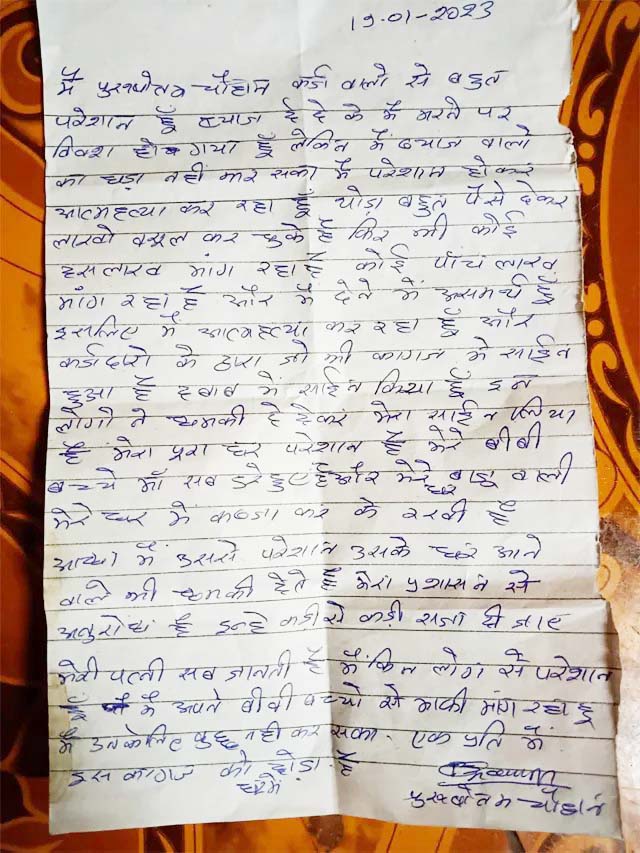 19-01-2023
मैं पुरुषोत्तम चौहान कर्जा वालो से बहुत
परेशान हूँ ब्याज दे दे के मैं मरने पर
विवश हो गया हूँ लेकिन मैं ब्याज वालो
का घड़ा नहीं भर सका मैं परेशान होकर
आत्महत्या कर रहा हूं थोडा बहुत पैसे देकर
लाखो वसूल कर चुके हैं फिर भी कोई
दस लाख मांग रहा हैं कोई पाँच लाख
मांग रहा हैं और मैं देने में असमर्थ हूँ
इसलिए मैं आत्महत्या कर रहा हूँ और
कर्जादारो के द्वारा जो भी कागज में साईन
हुआ हैं दबाव में साईन किया हूँ इन
लोगो ने धमकी दे देकर मेरा साईन लिया
हैं मेरा पूरा घर परेशान हैं मेरे बीबी
बच्चे माँ सब डरे हुए हैं और मेरे घर बाजू वाली
मेरे घर में कब्जा कर के रखी हैं
मैं उससे परेशान उसके घर आने
वाले भी धमकी देते हैं मेरा प्रशासन से
अनुरोध हैं इन्हे कड़ी से कड़ी सजा दी जाए
मेरी पत्नी सब जानती हैं मैं किन लोग से परेशान
हूँ मैं अपने बीवी बच्चो से माफी मांग रहा हूँ
मैं उनके लिए कुछ नही कर सका. एक प्रति मैं
इस कागज को घर में छोड़ा हैं
पुरुषोत्तम चौहान